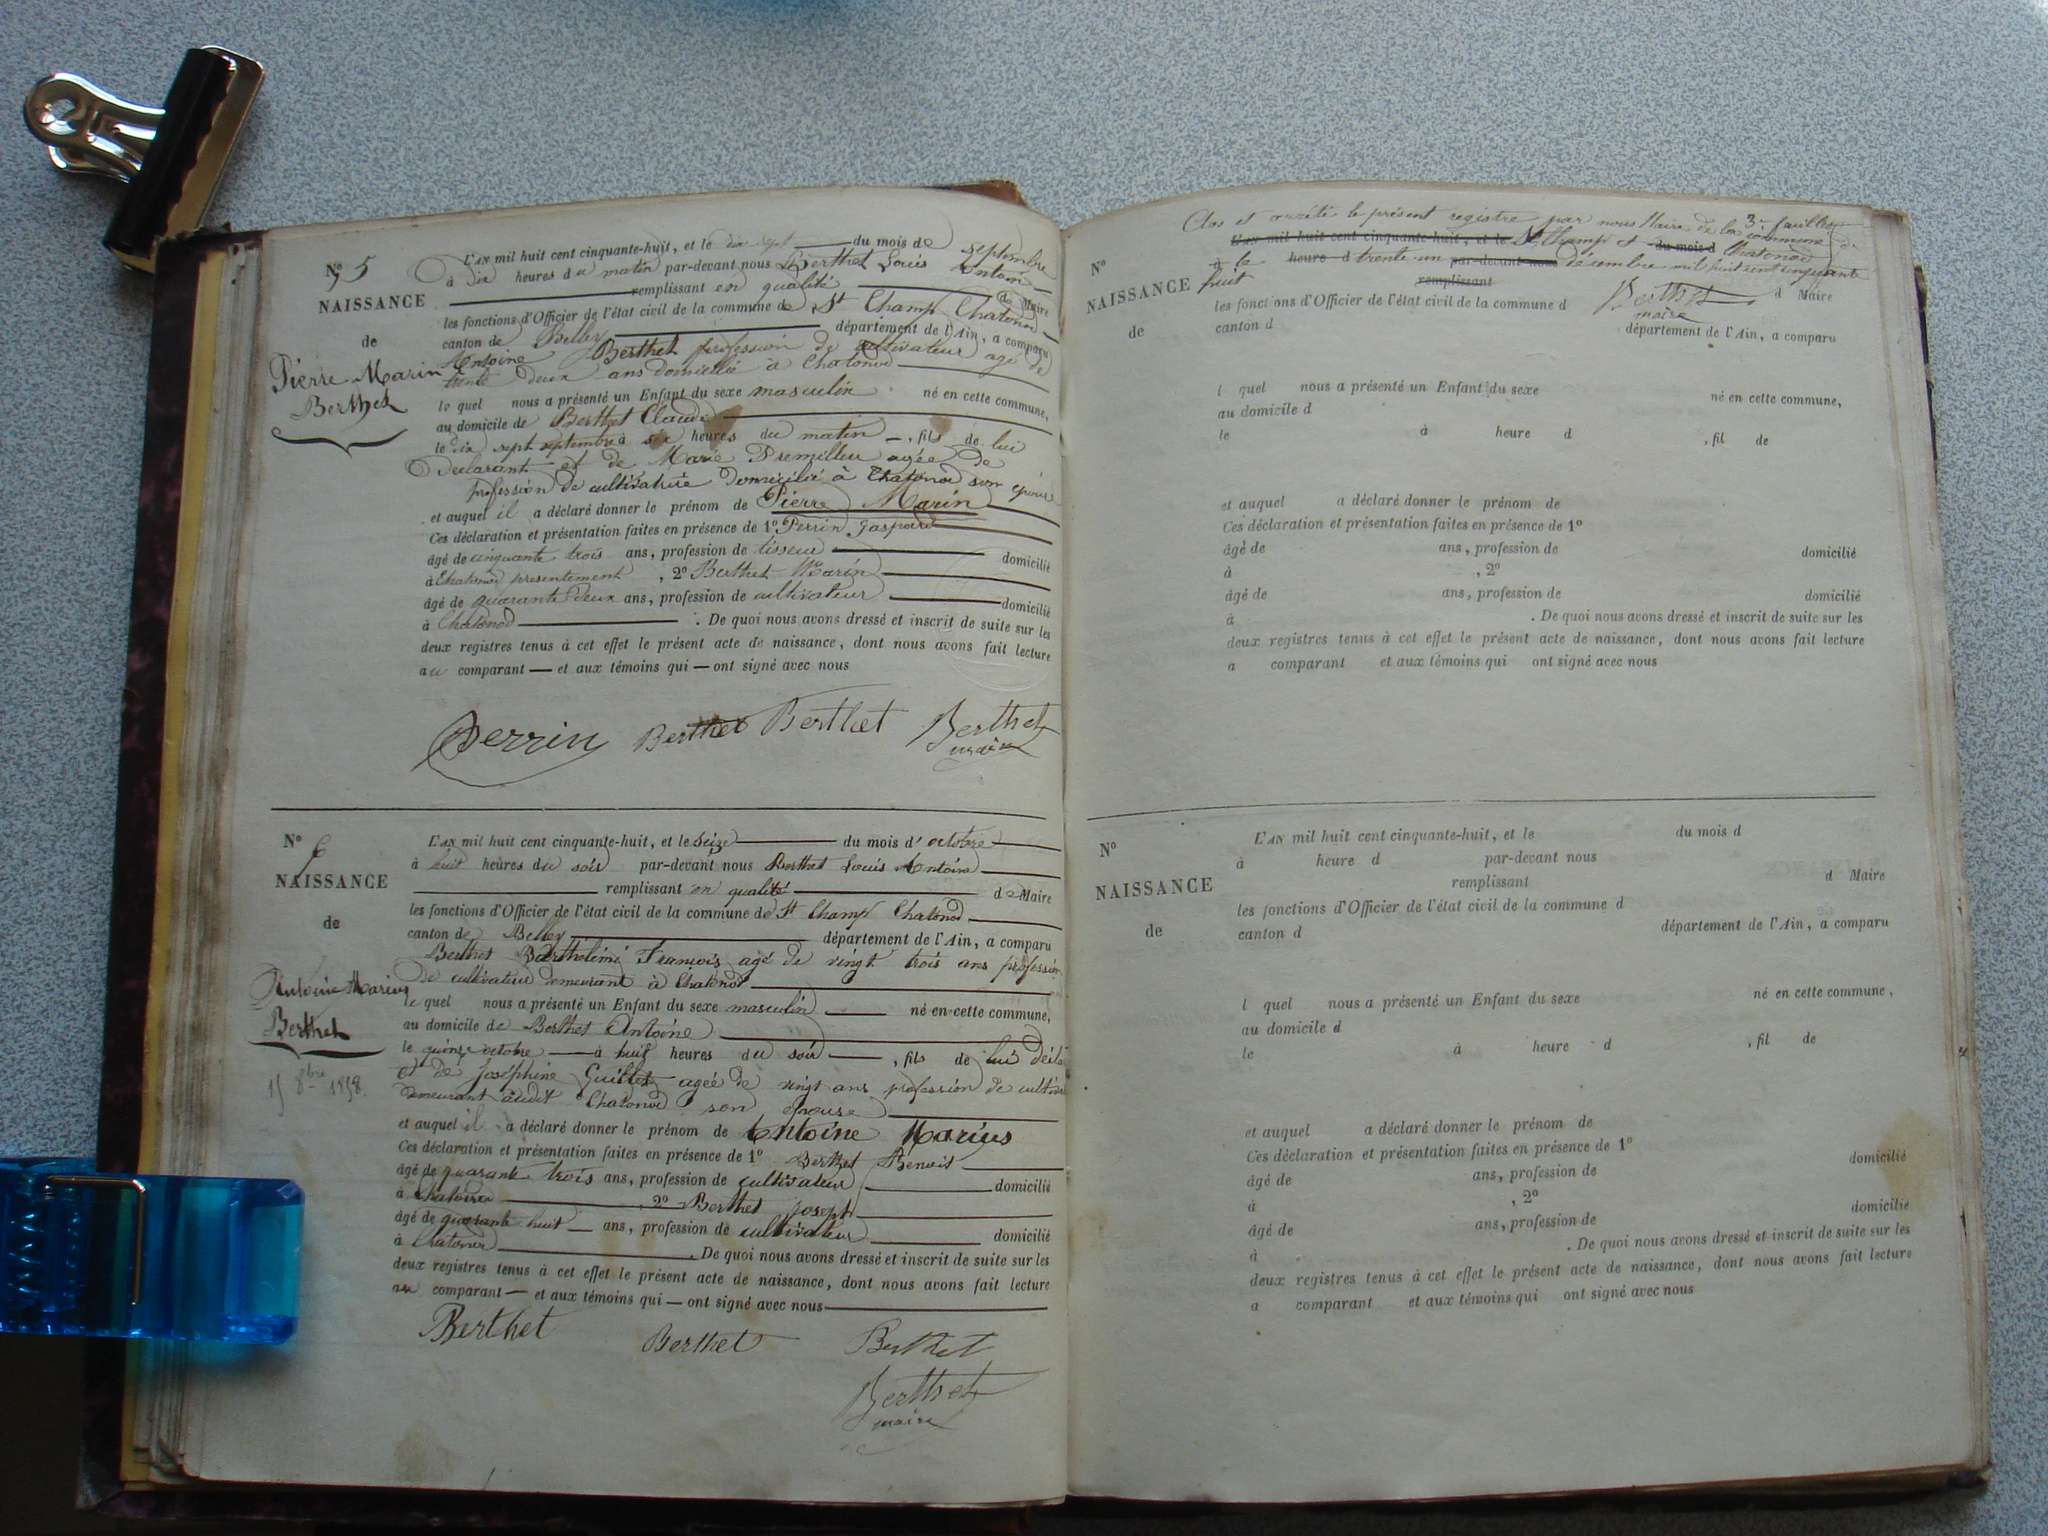 Nº 5
NAISSANCE
de
Pierre Marin
Berthet
L'AN mil huit cent cinquante-huit, et le dix sept du mois de septembre
à dix heures du matin par-devant nous Berthet Louis Antoine
remplissant en qualité de Maire
les fonctions d'Officier de l'état civil de la commune de St Champ Chatonod
canton de Belley département de l'Ain, a comparu
Antoine Berthet profession de cultivateur agé de
trente deux ans domicilié à Chatonod
le quel nous a présenté un Enfant du sexe masculin né en cette commune,
au domicile de Berthet Claude
le dix sept septembre à six heures du matin, fils de lui
Déclarant et de Marie Premillieu agée de
profession de cultivatrice domicilié à Chatonod son épouse
et auquel il a déclaré donner le prénom de Pierre Marin
Ces déclaration et présentation faites en présence de 1º Perrin Gaspard
âgé de cinquante trois ans, profession de tisseur domicilié
à Chatonod presentement, 2º Berthet Marin
âgé de quarante deux ans, profession de cultivateur domicilié
à Chatonod. De quoi nous avons dressé et inscrit de suite sur les
deux registres tenus à cet effet le présent acte de naissance, dont nous avons fait lecture
au comparant et aux témoins qui ont signé avec nous
Perrin Berthet Berthet Berthet
maire
Nº 6
NAISSANCE
de
Antoine Marius
Berthet
15 8bre 1858.
L'AN mil huit cent cinquante-huit, et le seize du mois d'octobre
à huit heures du soir par-devant nous Berthet Louis Antoine
remplissant en qualité de Maire
les fonctions d'Officier de l'état civil de la commune de St Champ Chatonod
canton de Belley département de l'Ain, a comparu
Berthet Barthélemi François agé de vingt trois ans profession
de cultivateur demeurant à Chatonod
le quel nous a présenté un Enfant du sexe masculin né en cette commune,
au domicile de Berthet Antoine
le quinze octobre à huit heures du soir, fils de lui
et de Joséphine Guillet agée de vingt ans profession de
demeurant audit Chatonod son épouse
et auquel il a déclaré donner le prénom de Antoine Marius
Ces déclaration et présentation faites en présence de 1º Berthet Benoit
âgé de quarante trois ans, profession de cultivateur domicilié
à Chatonod, 2º Berthet Joseph
âgé de quarante huit ans, profession de cultivateur domicilié
à Chatonod. De quoi nous avons dressé et inscrit de suite sur les
deux registres tenus à cet effet le présent acte de naissance, dont nous avons fait lecture
au comparant et aux témoins qui ont signé avec nous
Berthet Berthet Berthet
Berthet
maire
Clos et arrété le présent registre par nous Maire de la commune
3e feuillet
L'AN mil huit cent cinquante-huit, et le St Champ et du mois d Chatonod
Nº
à le heure d trente un par-devant nous décembre mil huit cent cinquante
NAISSANCE
huit remplissant
Berthet d Maire
maire
les fonctions d'Officier de l'état civil de la commune d
de
canton d département de l'Ain, a comparu
l quel nous a présenté un Enfant du sexe né en cette commune,
au domicile d
le à heure d , fil de
et auquel a déclaré donner le prénom de
Ces déclaration et présentation faites en présence de 1º
âgé de ans, profession de domicilié
à , 2º
âgé de ans, profession de domicilié
à . De quoi nous avons dressé et inscrit de suite sur les
deux registres tenus à cet effet le présent acte de naissance, dont nous avons fait lecture
a comparant et aux témoins qui ont signé avec nous
Nº
NAISSANCE
de
L'AN mil huit cent cinquante-huit, et le du mois d
à heure d par-devant nous
remplissant d Maire
les fonctions d'Officier de l'état civil de la commune d
canton d département de l'Ain, a comparu
l quel nous a présenté un Enfant du sexe né en cette commune,
au domicile d
le à heure d , fil de
et auquel a déclaré donner le prénom de
Ces déclaration et présentation faites en présence de 1º
âgé de ans, profession de domicilié
à , 2º
âgé de ans, profession de domicilié
à . De quoi nous avons dressé et inscrit de suite sur les
deux registres tenus à cet effet le présent acte de naissance, dont nous avons fait lecture
a comparant et aux témoins qui ont signé avec nous